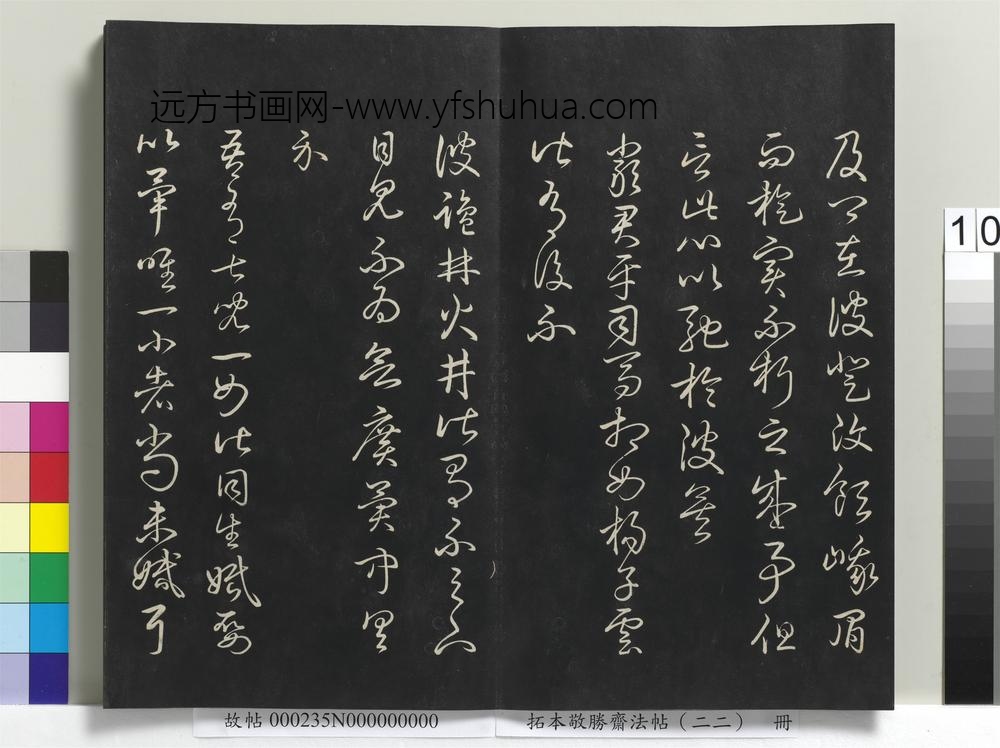 远方书画网-www.yfshuhua.com
及卿在彼登汶領峨眉
而旋實不朽之盛事但
言此心以馳於彼矣
嚴君平司馬相如揚子雲
皆有後不
彼鹽井火井皆有不足下
目見不為欲廣異聞具
示
吾有七兒一女皆同生婚娶
以畢唯一小者尚未婚耳
10
故帖 000235N000000000
拓本敬勝齋法帖(二二) 冊